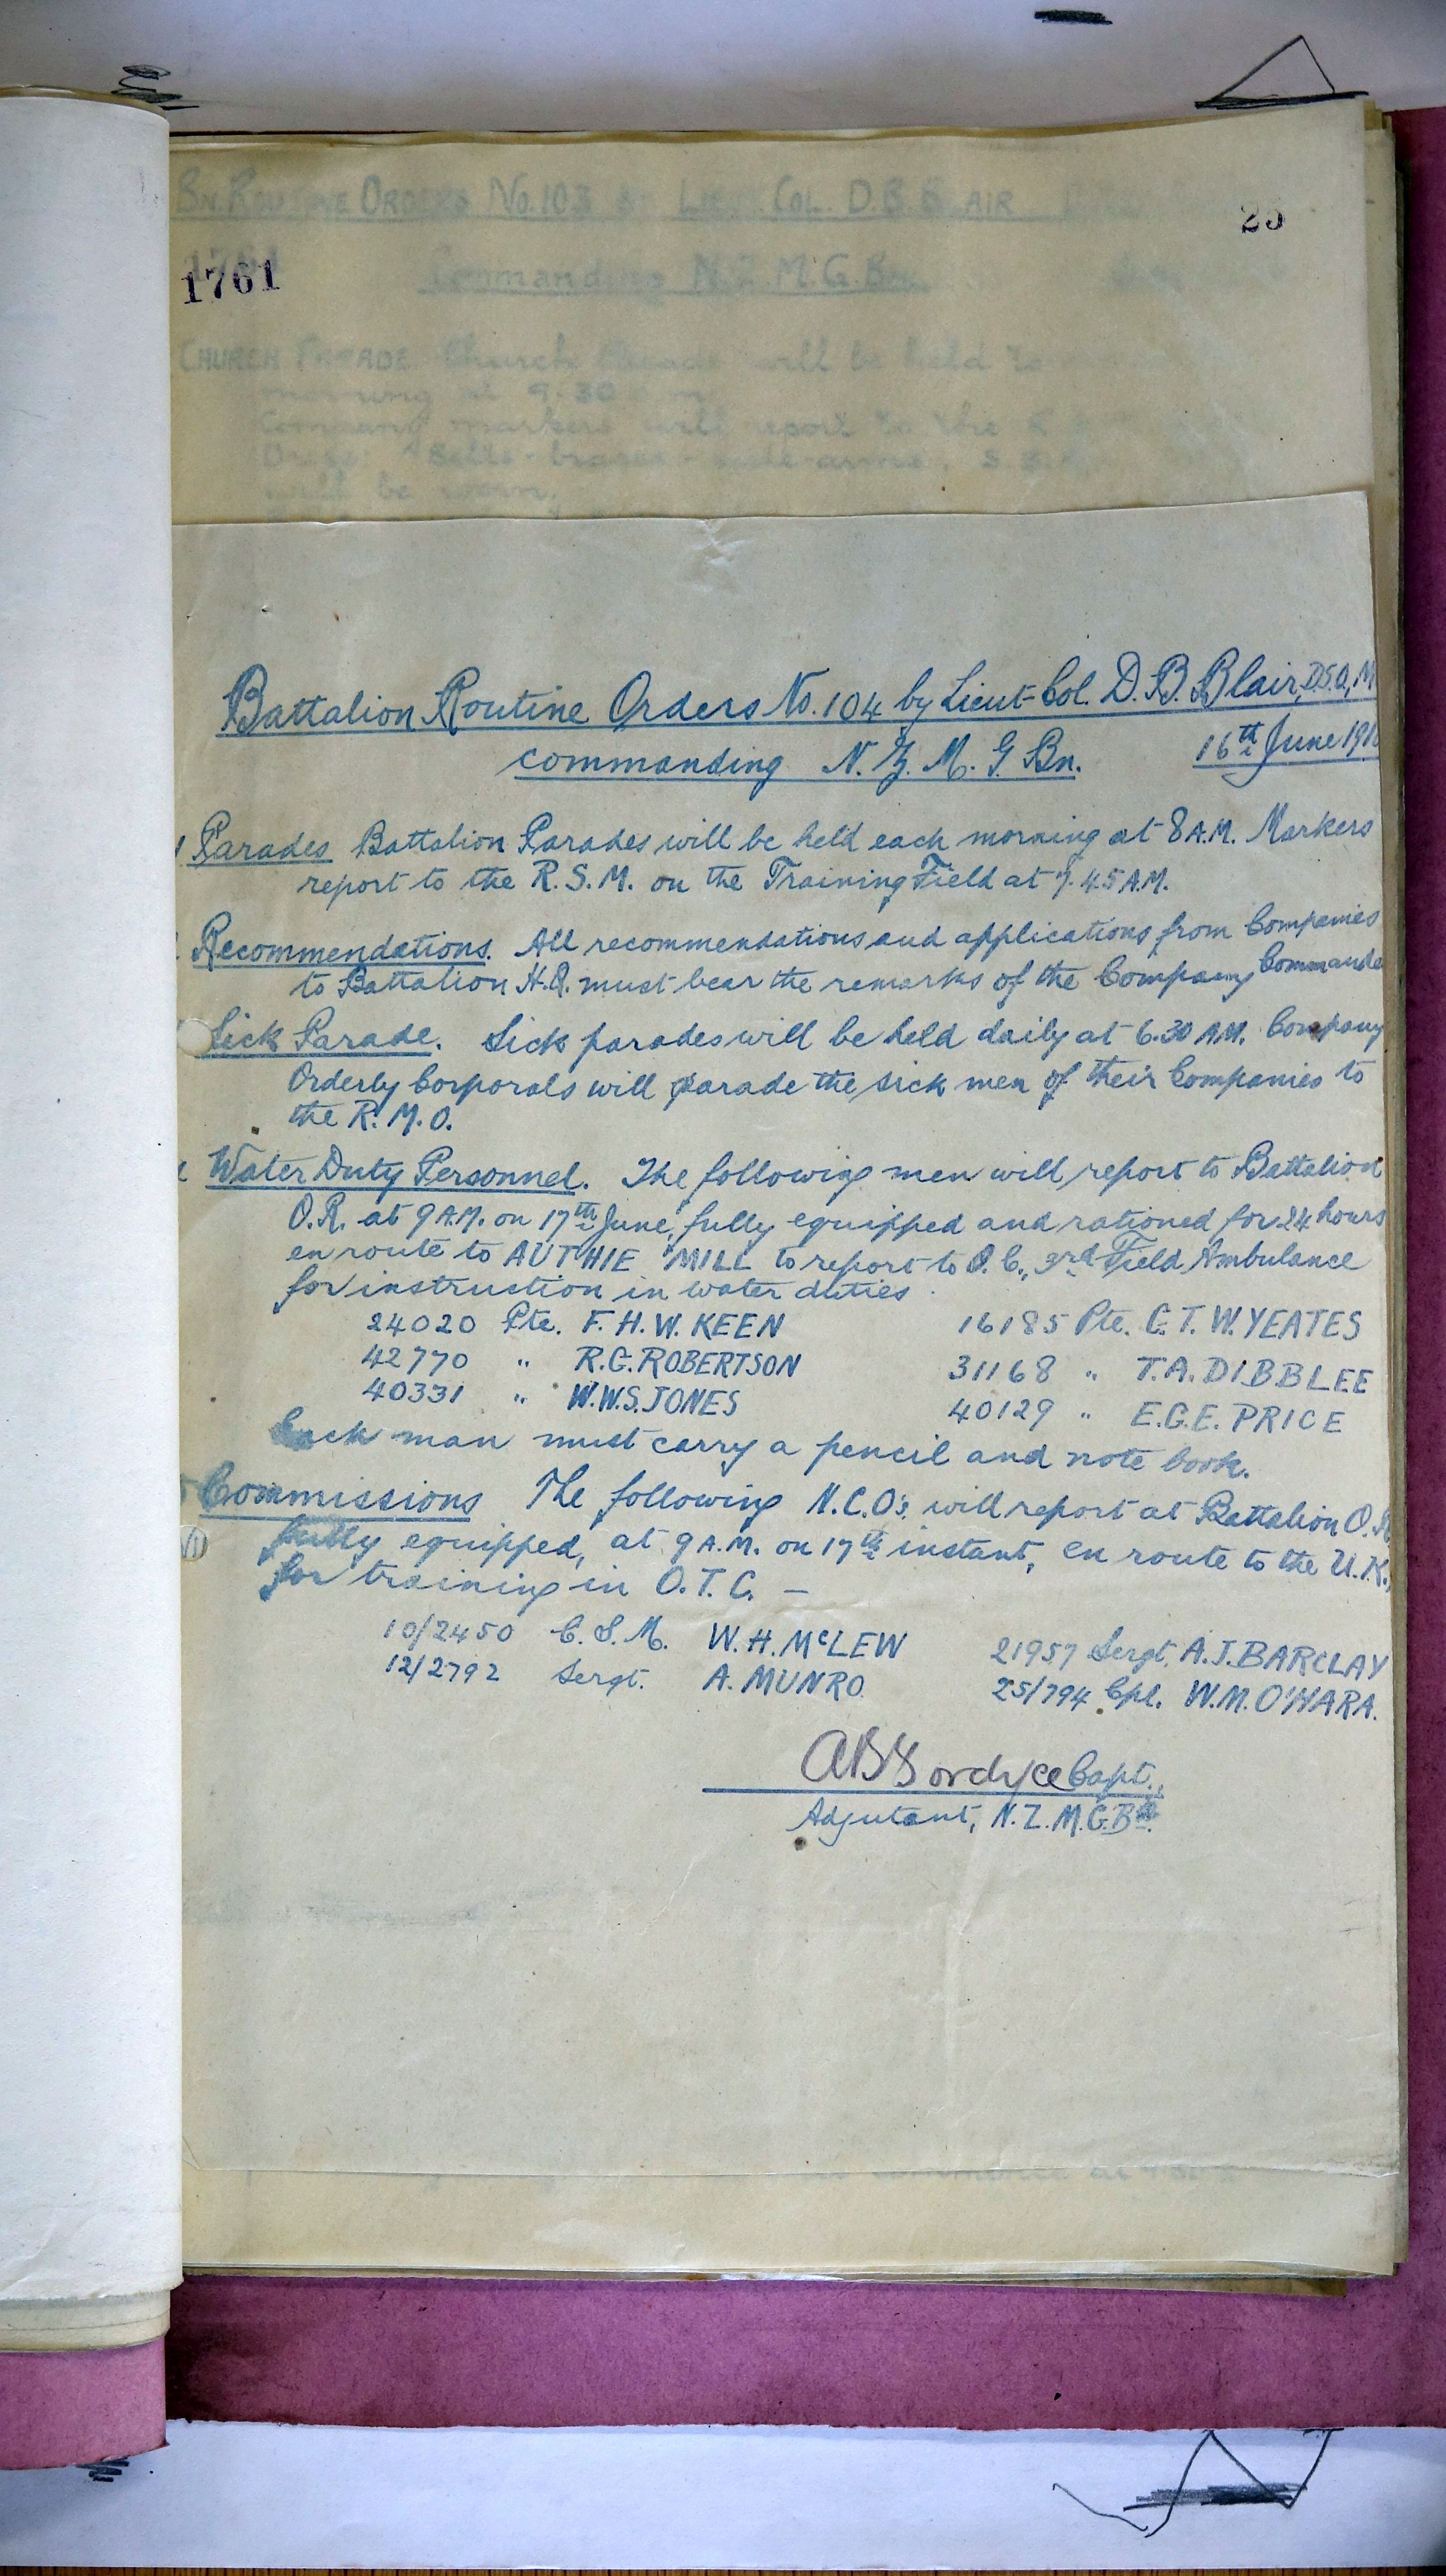 BN. ROUTINE ORDERS NO. 103 LIEUT. COL. D.B. BLAIR
25
1761
Commanding N.Z.M.G.Bn.
CHURCH PARADE Church Parade will be held
morning at 9.30
Company markers will report to the
Dress: Belts - braces - side-arms. S.B.
will be worn.
Battalion Routine Orders No. 104 by Lieut-Col. D. B. Blair, D.S.O., M
commanding N. Z. M. G Bn. 16th June 191
Parades Battalion Parades will be held each morning at 8 A.M. Markers
report to the R.S.M. on the Training Field at 7.45 A.M.
Recommendations. All recommendations and applications from Companies
to Battalion H.Q. must bear the remarks of the Company Commande
Sick Parade. Sick parades will be held daily at 6.30 A.M. Company
Orderly Corporals will parade the sick men of their Companies to
the R.M.O.
Water Duty Personnel. The following men will report to Battalion
O.R. at 9 A.M. on 17th June, fully equipped and rationed for 24 hours
en route to AUTHIE MILL to report to O.C., 3rd Field Ambulance
for instruction in water duties.
24020 Pte. F. H. W. KEEN 16185 Pte. C. T. W. YEATES
42770 " R.G. ROBERTSON 31168 " T.A. DIBBLEE
40331 " W.W.S. JONES 40129 " E.G.E. PRICE
Each man must carry a pencil and note book.
Commissions The following N.C.O's, will report at Battalion O.R.
fully equipped, at 9 A.M. on 17th instant, en route to the U.K.,
for training in O.T.C. —
10/2450 C.S.M. W.H. McLEW 21957 Sergt. A.J. BARCLAY
12/2792 Sergt. A. MUNRO 25/794 Cpl. W.M. O'HARA.
Capt.,
Adjutant, N.Z.M.G.Bn.